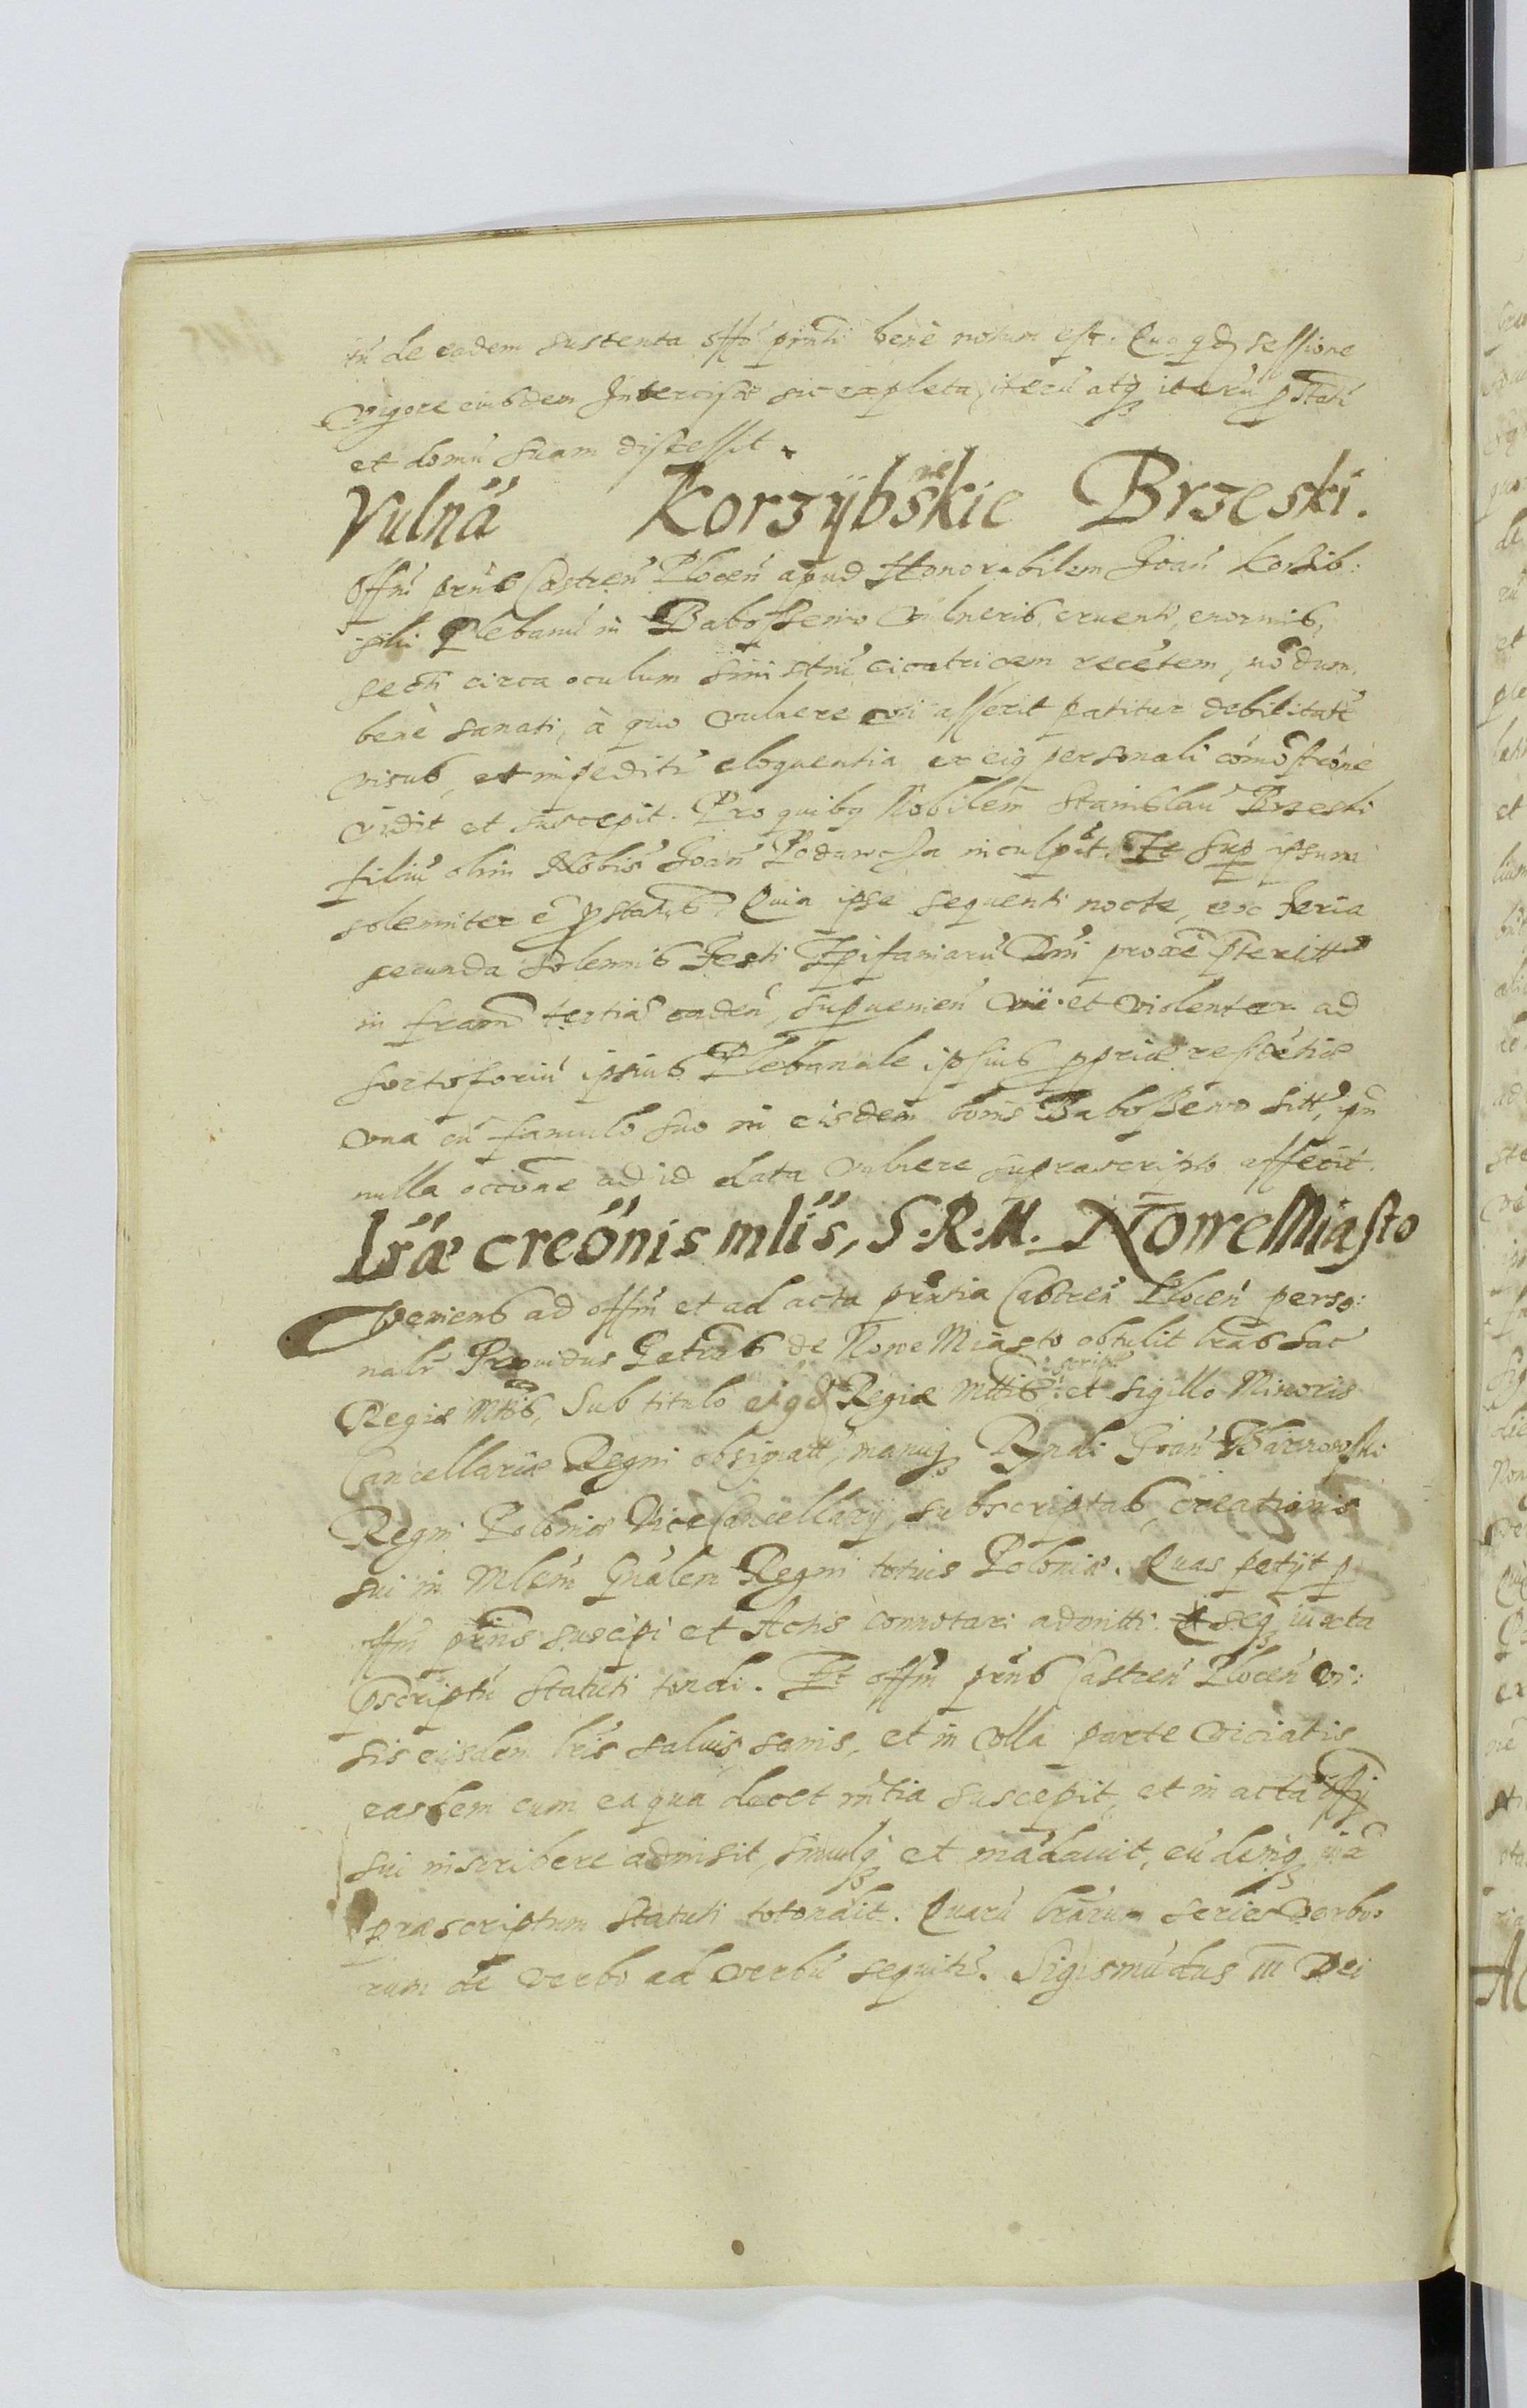 tñ de eadem sustenta offo pñti bene notum est. Quo qd sessione
vigore eiusdem Intercisæ sic expleta, iterũ atq iterũ ptatũ
et domũ suam discessit.
Vulña Korzÿbskie Brzeski.
Offm pñs Castreñ Ploceñ apud Honorabilem Joañ Korzib:
ski Plebanũ in Babossewo vulneris, cruenti, enormis,
secti circa oculum sinistrũ cicatricem recẽtem, nõdum
benè sanati, à quo vulnere uti asserit patitur debilitatẽ
visus, et impeditũ eloquentia ex eiq personali cõmõstrõne
vidit et suscepit. Pro quibq Nobilem Stanislaũ Brzeski
filiũ olim Nobis Joañ inculpat. Et sup ipsum
solemniter ẽ ptatus, Quia ipse sequenti nocte, ex feria
secunda solennis Festi Epifaniarũ Dni proxẽ pteritt
in fram̃ tertiã cadeñ, supueniẽn vi et violenter ad
fortoforiũ ipsius Plebanale ipsius ppriæ residẽtiæ
una cũ famulo suo in eisdem bonis Babossewo sitt,
nulla occõne ad id data vulnere suprascripto affecit.
Lræ creõnis mlis, S.R.M. NoweMiasto
Veniens ad offm et ad acta pñtia Castreñ Ploceñ perso:
nalr Prouidus Petrus de Nowe Miasto obtulit lras Sac
Regiæ Mtis, Sub titulo eiqd Regiæ Mttis script et sigillo Minoris
Cancellariæ Regni obsignatt, manuq Rndi Joañ Tarnowski
Regni Poloniæ ViceCancellarij, subscriptas, creationis
sui in Mlem Gnalem Regni totius Poloniæ. Quas petijt p
offm pñs suscipi et Actis connotari admitti seq iuxta
pscriptũ Statuti tondi. Et offm pñs Castreñ Ploceñ vi:
sis eisdem lris saluis sanis, et in ulla parte viciatis
easdem cum ea qua decet rñtia suscepit, et in acta offij
sui inscribere admisit, simulq et mãdauit, eũ deniq iũa
præscriptum Statuti totondit. Quarũ lrarum series verbo:
rum de verbo ad verbũ sequitr. Sigismũdus III Dei